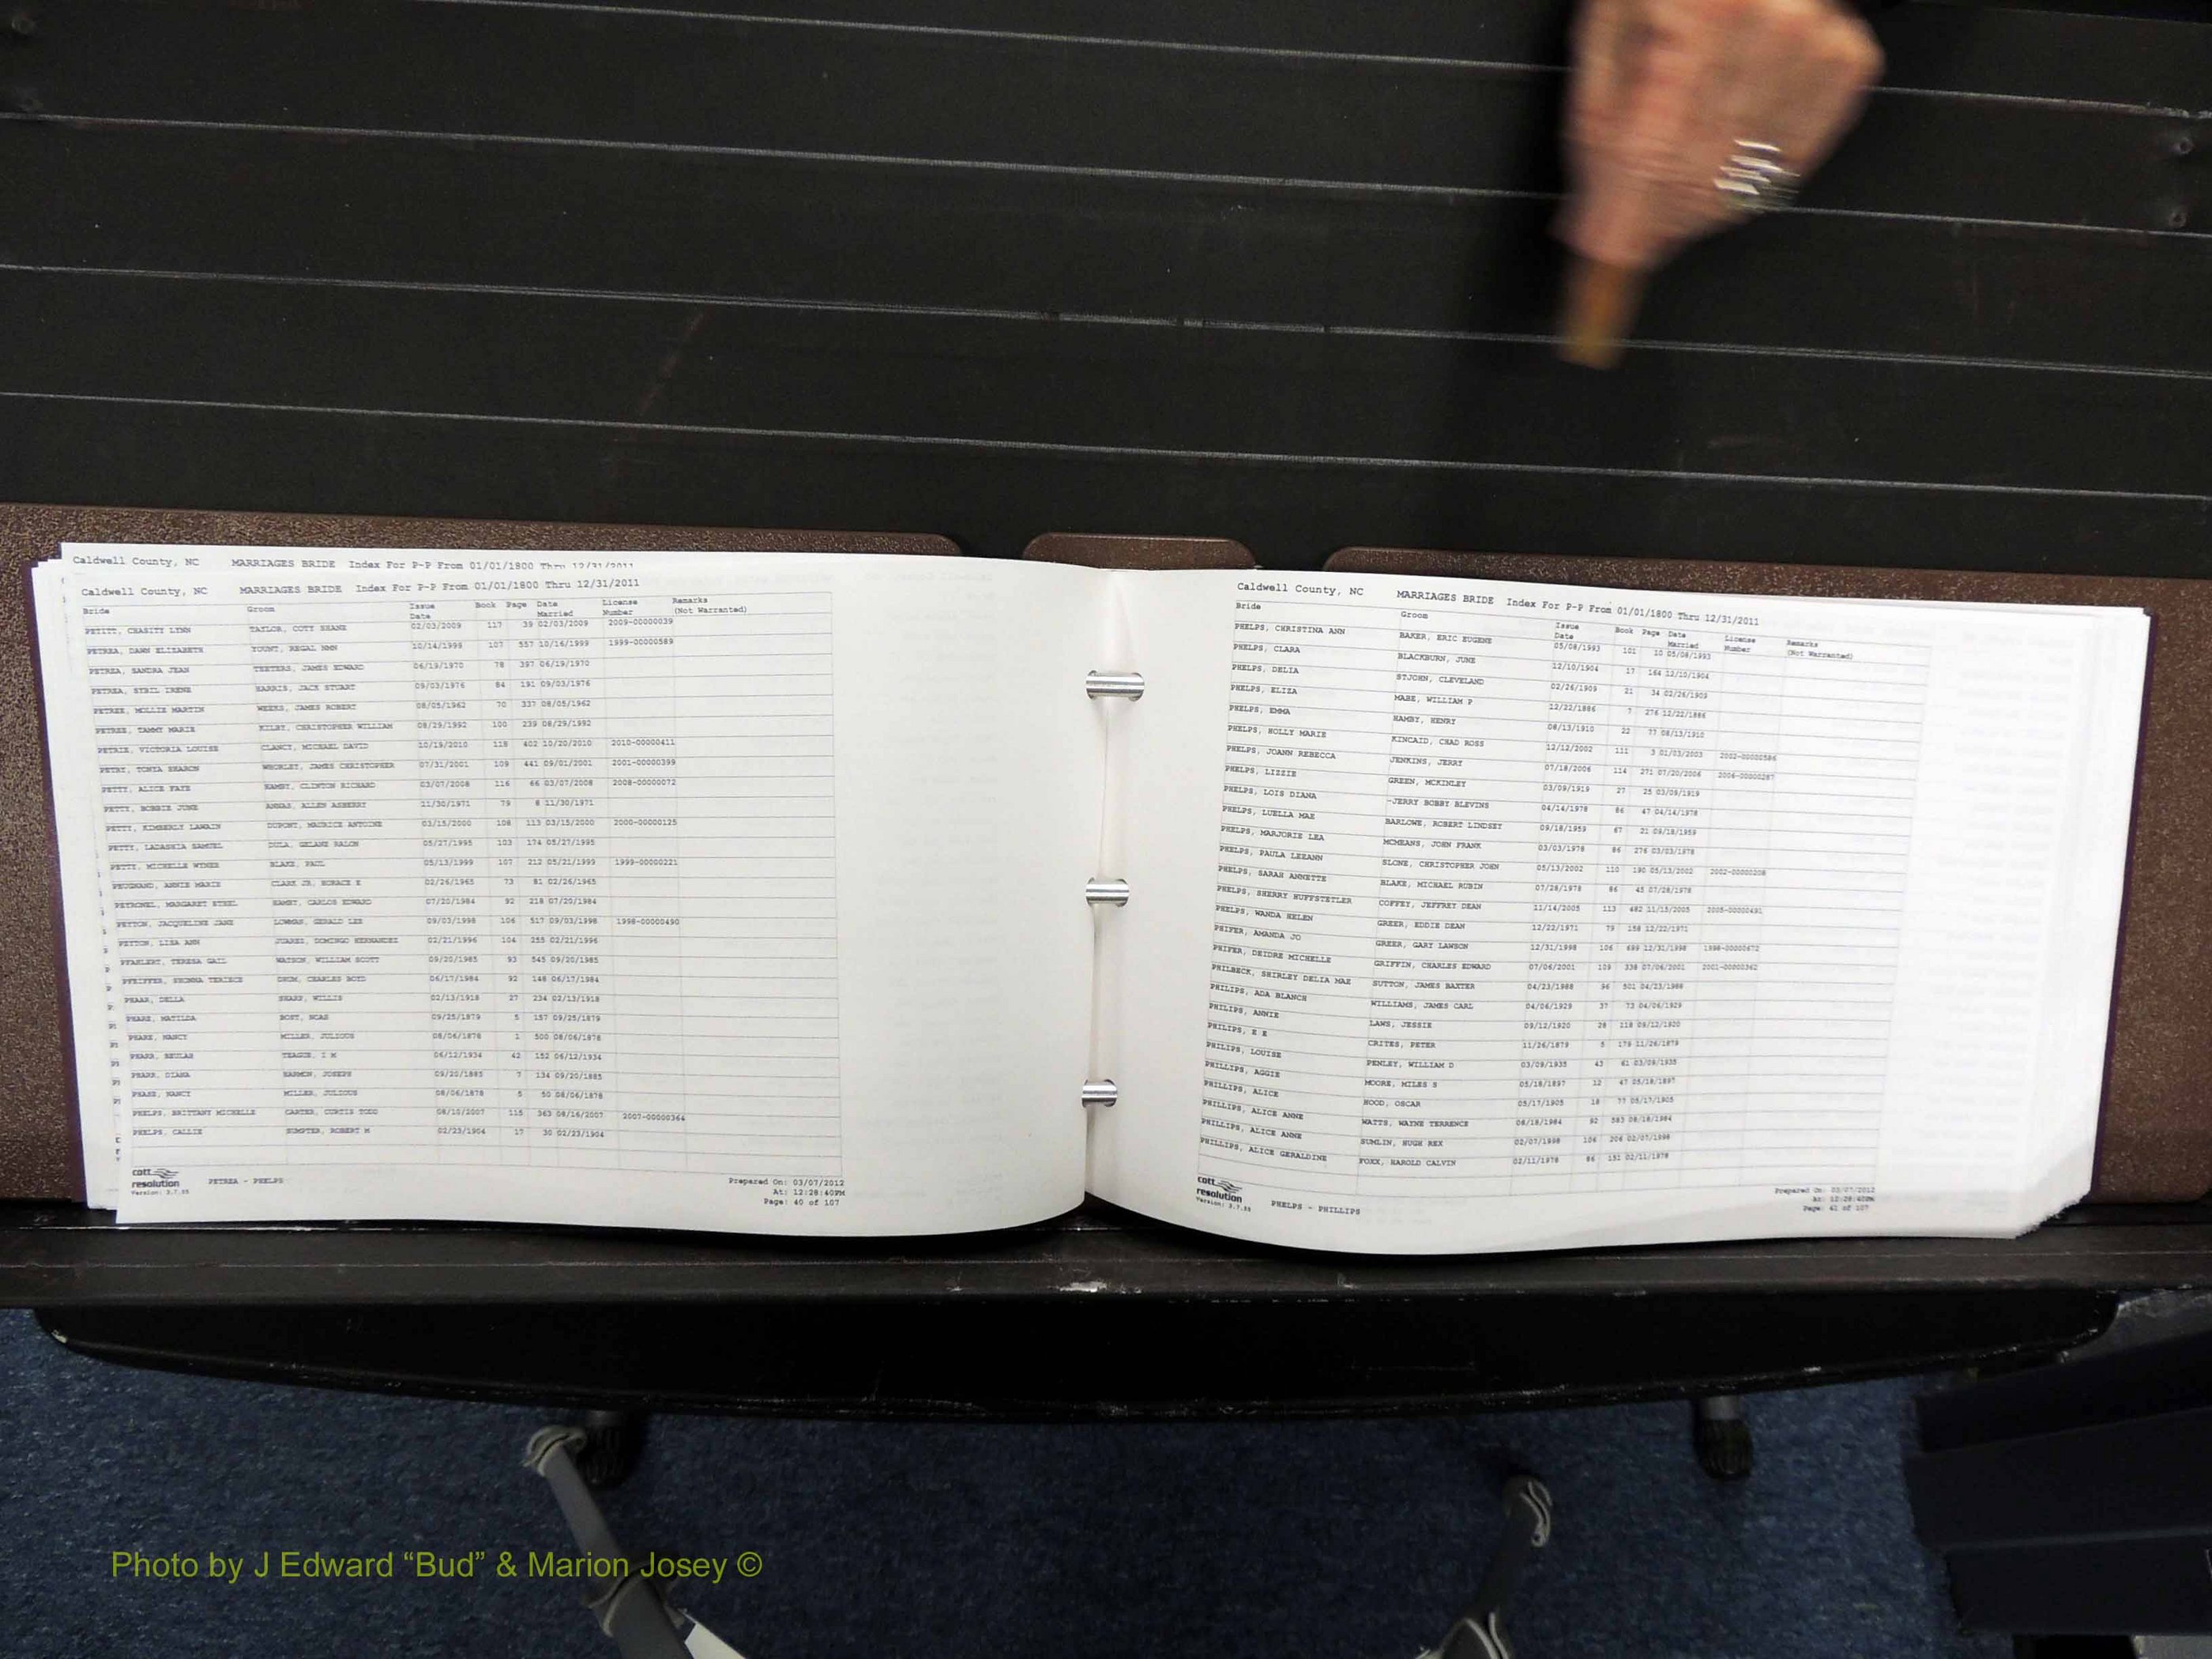 Caldwell County, NC MARRIAGES BRIDE Index For P-P From 01/01/1800 Thru 12/31/2011
Caldwell County, NC MARRIAGES BRIDE Index For P-P From 01/01/1800 Thru 12/31/2011
Bride Groom Issue Date Book Page Date Married License Number Remarks (Not Warranted)
PETITT, CHASITY LYNN TAYLOR, COTY SHANE 02/03/2009 117 39 02/03/2009 2009-00000039
PETREA, DAWN ELIZABETH YOUNT, REGAL NMN 10/14/1999 107 557 10/16/1999 1999-00000589
PETREA, SANDRA JEAN TEETERS, JAMES EDWARD 06/19/1970 78 397 06/19/1970
PETREA, SYBIL IRENE HARRIS, JACK STUART 09/03/1976 84 191 09/03/1976
PETREE, MOLLIE MARTIN WEEKS, JAMES ROBERT 08/05/1962 70 337 08/05/1962
PETREE, TAMMY MARIE KILBY, CHRISTOPHER WILLIAM 08/29/1992 100 239 08/29/1992
PETRIE, VICTORIA LOUISE CLANCY, MICHAEL DAVID 10/19/2010 118 402 10/20/2010 2010-00000411
PETRY, TONYA SHARON WHORLEY, JAMES CHRISTOPHER 07/31/2001 109 441 09/01/2001 2001-00000399
PETTY, ALICE FAYE HAMBY, CLINTON RICHARD 03/07/2008 116 66 03/07/2008 2008-00000072
PETTY, BOBBIE JUNE ANNAS, ALLEN ASBERRY 11/30/1971 79 8 11/30/1971
PETTY, KIMBERLY LAWAIN DUPONT, MAURICE ANTOINE 03/15/2000 108 113 03/15/2000 2000-00000125
PETTY, LADASHIA SAMTEL DULA, RALON 05/27/1995 103 174 05/27/1995
PETTY, MICHELLE WYNES BLAKE, PAUL 05/13/1999 107 212 05/21/1999 1999-00000221
ANNIE MARIE CLARK JR, HORACE E 02/26/1965 73 81 02/26/1965
PETRONEL, MARGARET ETHEL HAMBY, CARLOS EDWARD 07/20/1984 92 218 07/20/1984
PEYTON, JACQUELINE JANE LOWMAN, GERALD LEE 09/03/1998 106 517 09/03/1998 1998-00000490
PEYTON, LISA ANN JUAREZ, DOMINGO HERNANDEZ 02/21/1996 104 255 02/21/1996
PFAHLERT, TERESA GAIL WATSON, WILLIAM SCOTT 09/20/1985 93 545 09/20/1985
PFEIFFER, SHONNA TERIECE DRUM, CHARLES BOYD 06/17/1984 92 148 06/17/1984
PHAAR, DELLA SHARP, WILLIS 02/13/1918 27 234 02/13/1918
PHARE, MATILDA BOST, NOAH 09/25/1879 5 157 09/25/1879
PHARE, NANCY MILLER, JULIOUS 08/06/1878 1 500 08/06/1878
PHARR, BEULAH TEAGUE, I M 06/12/1934 42 152 06/12/1934
PHARR, DIANA HARMON, JOSEPH 09/20/1885 7 134 09/20/1885
PHARR, NANCY MILLER, JULIOUS 08/06/1878 5 50 08/06/1878
PHELPS, BRITTANY MICHELLE CARTER, CURTIS TODD 08/10/2007 115 363 08/16/2007 2007-00000364
PHELPS, CALLIE SUMPTER, ROBERT M 02/23/1904 17 30 02/23/1904
cott resolution Version: 3.7.55 PETREA - PHELPS Prepared On: 03/07/2012
At: 12:28:40PM
Page: 40 of 107
Caldwell County, NC MARRIAGES BRIDE Index For P-P From 01/01/1800 Thru 12/31/2011
Bride Groom Issue Date Book Page Date Married License Number Remarks (Not Warranted)
PHELPS, CHRISTINA ANN BAKER, ERIC EUGENE 05/08/1993 101 10 05/08/1993
PHELPS, CLARA BLACKBURN, JUNE 12/10/1904 17 164 12/10/1904
PHELPS, DELIA STJOHN, CLEVELAND 02/26/1909 21 34 02/26/1909
PHELPS, ELIZA MABE, WILLIAM P 12/22/1886 7 276 12/22/1886
PHELPS, EMMA HAMBY, HENRY 08/13/1910 22 77 08/13/1910
PHELPS, HOLLY MARIE KINCAID, CHAD ROSS 12/12/2002 111 3 01/03/2003 2002-00000586
PHELPS, JOANN REBECCA JENKINS, JERRY 07/18/2006 114 271 07/20/2006 2006-00000287
PHELPS, LIZZIE GREEN, MCKINLEY 03/09/1919 27 25 03/09/1919
PHELPS, LOIS DIANA -JERRY BOBBY BLEVINS 04/14/1978 86 47 04/14/1978
PHELPS, LUELLA MAE BARLOWE, ROBERT LINDSEY 09/18/1959 67 21 09/18/1959
PHELPS, MARJORIE LEA MCMEANS, JOHN FRANK 03/03/1978 86 276 03/03/1978
PHELPS, PAULA LEEANN SLONE, CHRISTOPHER JOHN 05/13/2002 110 190 05/13/2002 2002-00000208
PHELPS, SARAH ANNETTE BLAKE, MICHAEL RUBIN 07/28/1978 86 45 07/28/1978
PHELPS, SHERRY HUFFSTETLER COFFEY, JEFFREY DEAN 11/14/2005 113 482 11/15/2005 2005-00000491
PHELPS, WANDA HELEN GREER, EDDIE DEAN 12/22/1971 79 158 12/22/1971
PHIFER, AMANDA JO GREER, GARY LAWSON 12/31/1998 106 699 12/31/1998 1998-00000672
PHIFER, DEIDRE MICHELLE GRIFFIN, CHARLES EDWARD 07/06/2001 109 338 07/06/2001 2001-00000362
PHILBECK, SHIRLEY DELIA MAE SUTTON, JAMES BAXTER 04/23/1988 96 501 04/23/1988
PHILIPS, ADA BLANCH WILLIAMS, JAMES CARL 04/06/1929 37 73 04/06/1929
PHILIPS, ANNIE LAWS, JESSIE 09/12/1920 28 118 09/12/1920
PHILIPS, E E CRITES, PETER 11/26/1879 5 179 11/26/1879
PHILIPS, LOUISE PENLEY, WILLIAM D 03/09/1935 43 61 03/09/1935
PHILLIPS, AGGIE MOORE, MILES S 05/18/1897 12 47 05/18/1897
PHILLIPS, ALICE HOOD, OSCAR 05/17/1905 18 77 05/17/1905
PHILLIPS, ALICE ANNE WATTS, WAYNE TERRENCE 08/18/1984 92 583 08/18/1984
PHILLIPS, ALICE ANNE SUMLIN, HUGH REX 02/07/1998 106 206 02/07/1998
PHILLIPS, ALICE GERALDINE FOXX, HAROLD CALVIN 02/11/1978 86 151 02/11/1978
cott resolution Version: 3.7.55 PHELPS - PHILLIPS Prepared On: 03/07/2012
At: 12:28:40PM
Page: 41 of 107
Photo by J Edward “Bud” & Marion Josey ©